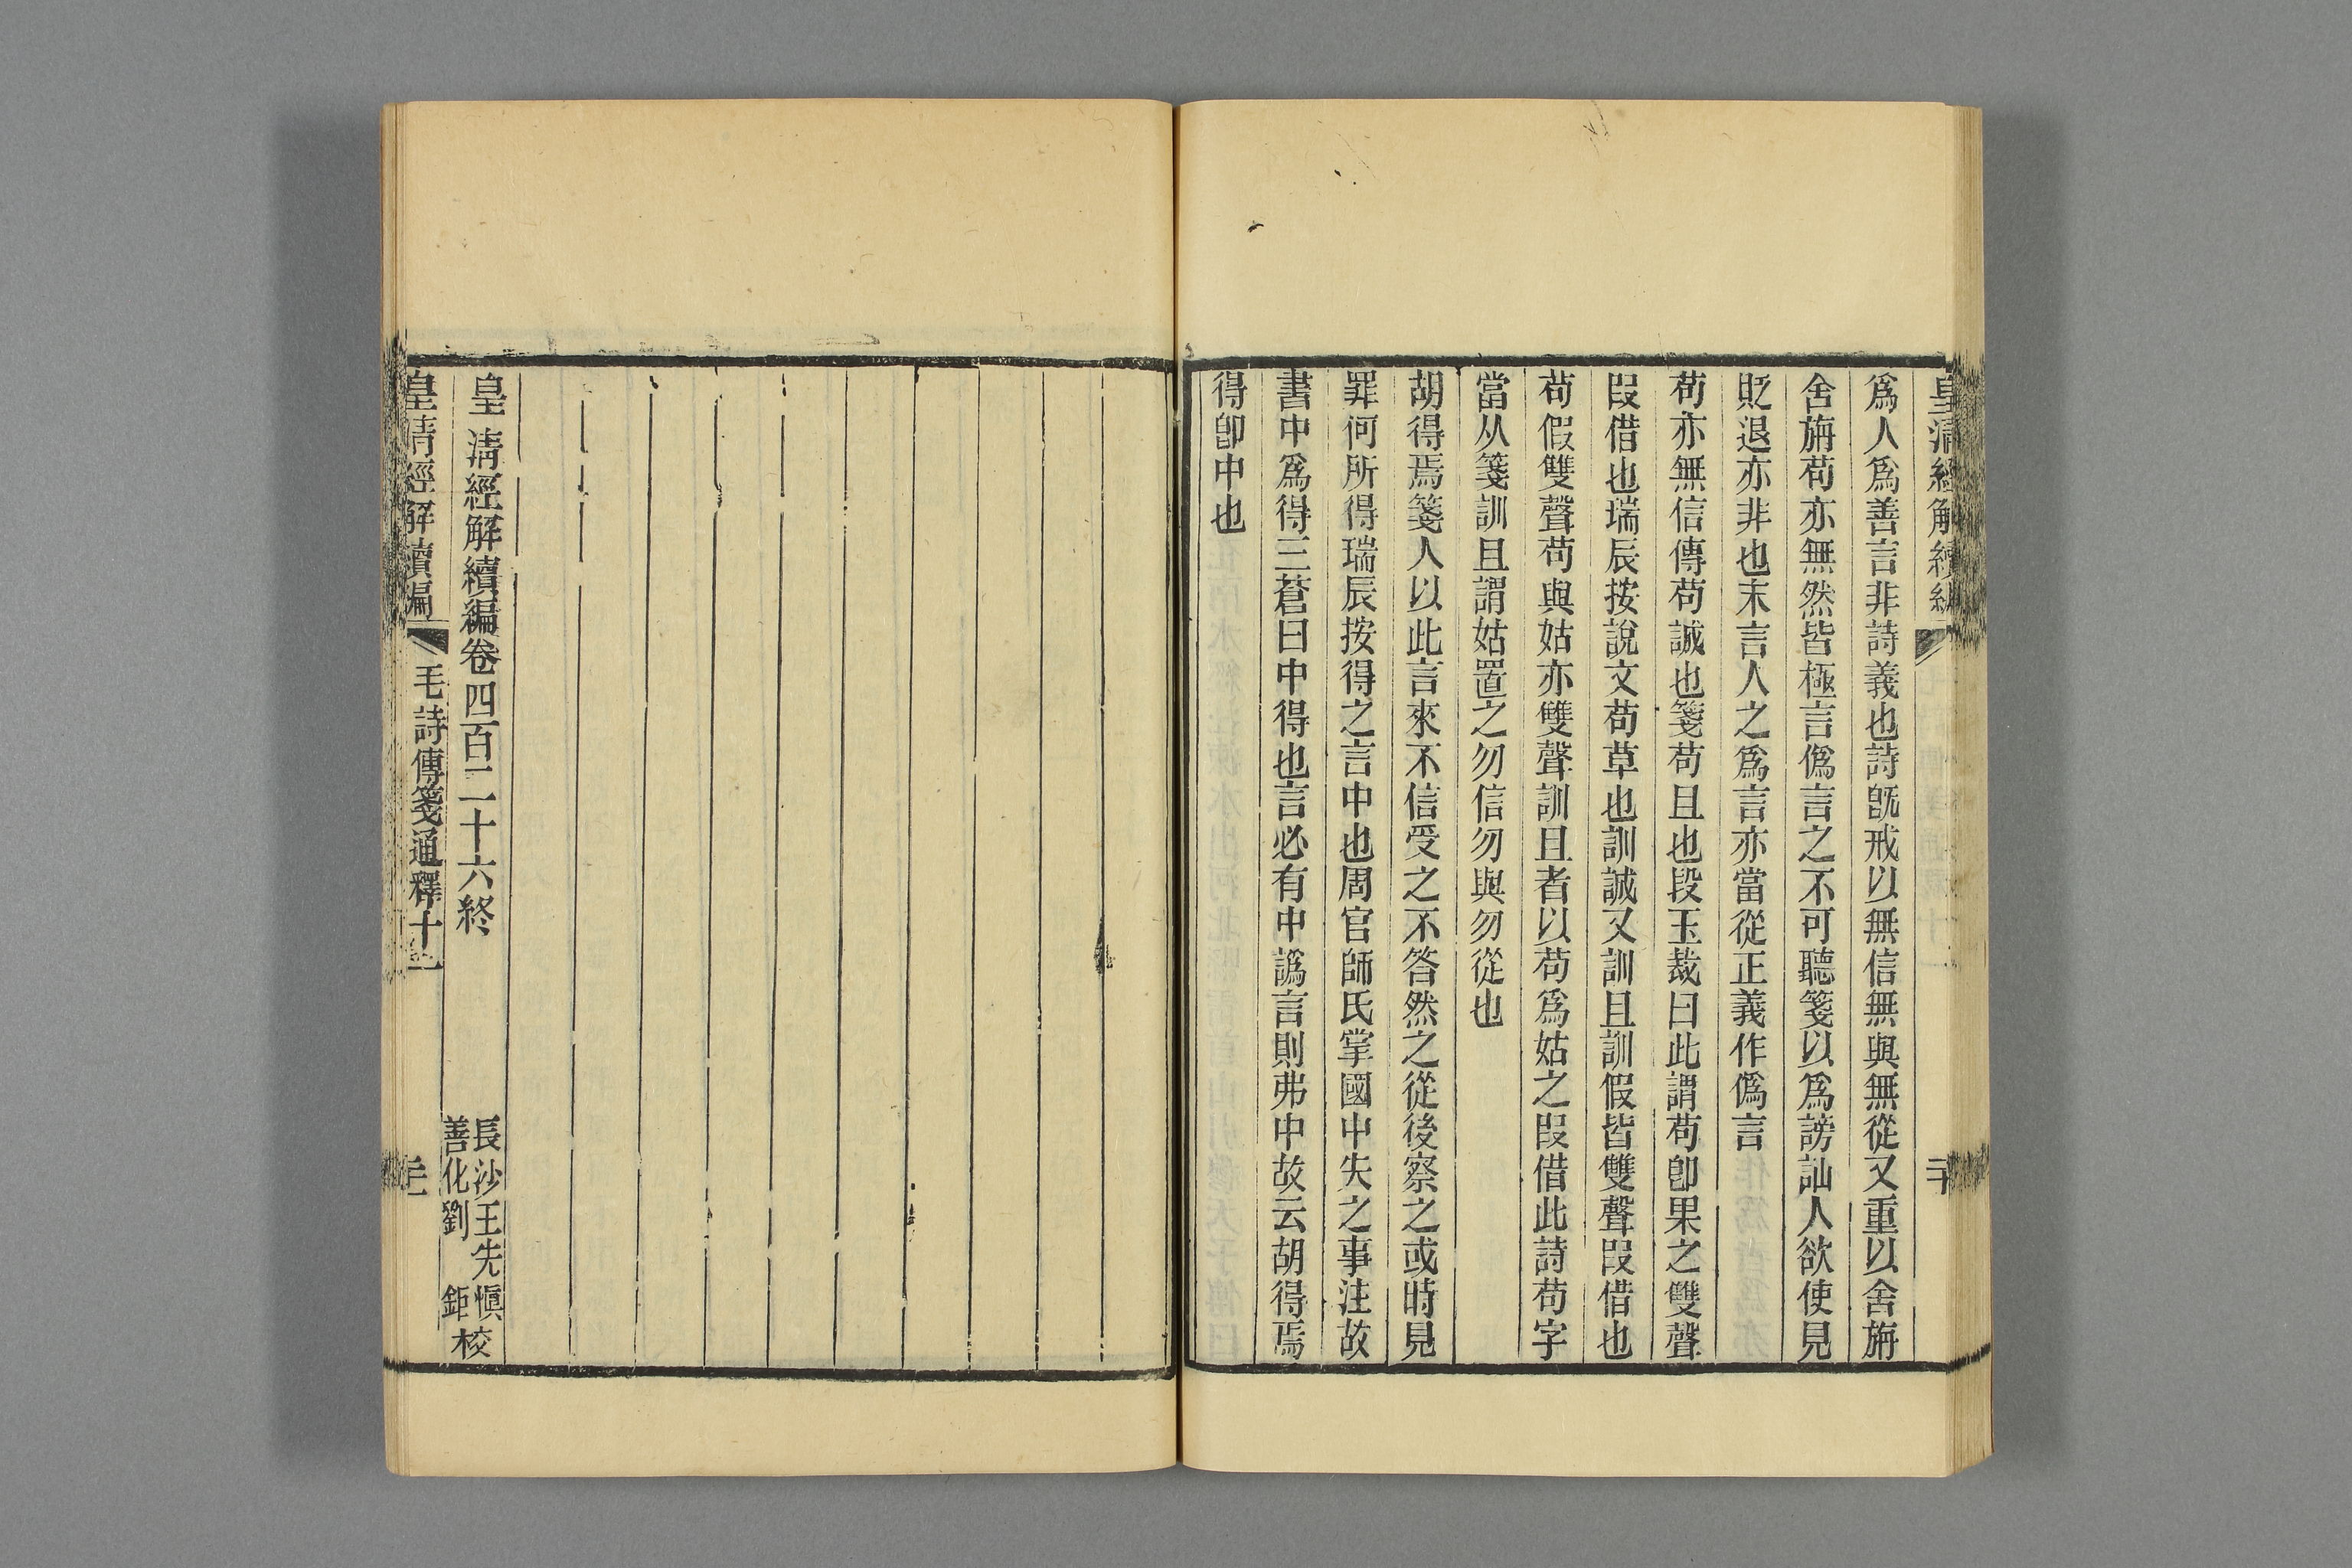 皇清經解續編
二十
爲人爲善言非詩義也詩旣戒以無信無與無從又重以舍旃
舍旃苟亦無然皆極言僞言之不可聽箋以爲謗訕人欲使見
貶退亦非也末言人之爲言亦當從正義作僞言
苟亦無信傳苟誠也箋苟且也段玉裁曰此謂苟卽果之雙聲
叚借也瑞辰按說文苟草也訓誠又訓且訓假皆雙聲叚借也
苟假雙聲苟與姑亦雙聲訓且者以苟爲姑之叚借此詩苟字
當从箋訓且謂姑置之勿信勿與勿從也
胡得焉箋人以此言來不信受之不答然之從後察之或時見
罪何所得瑞辰按得之言中也周官師氏掌國中失之事注故
書中爲得三蒼曰中得也言必有中譌言則弗中故云胡得焉
得卽中也
皇清經解續編卷四百二十六終
長沙王先愼
善化劉　鉅
校
皇清經解續編
毛詩傳箋通釋十一